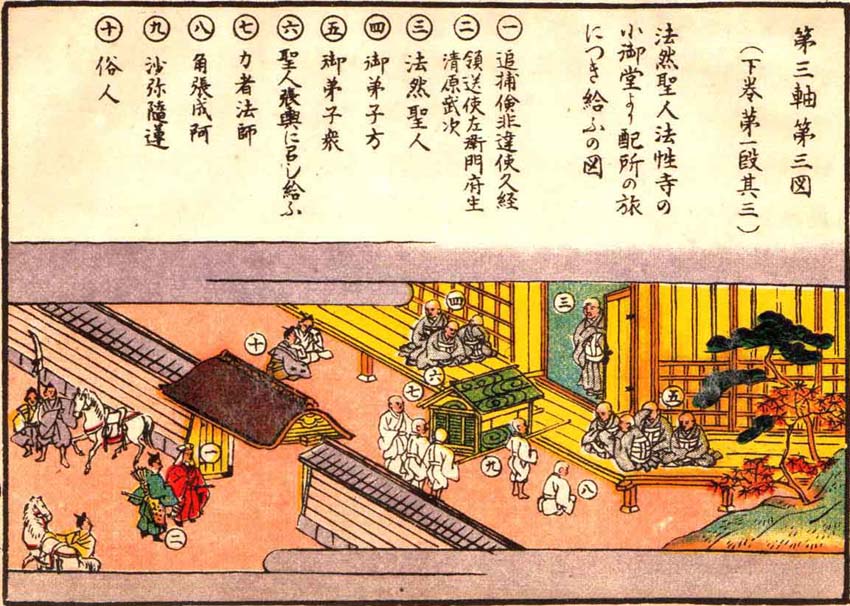 第三軸第三図
（下巻第一段其三）
法然聖人法性寺の
小御堂より配所の旅
につき給ふの図
一 追捕倹非違使久経
二 領送使左衛門府生
清原武次
三 法然聖人
四 御弟子方
五 御弟子衆
六 聖人張輿に召し給ふ
七 力者法師
八 角張成阿
九 沙弥隨蓮
十 俗人
三
四
十
六
七
五
一
九
八
二